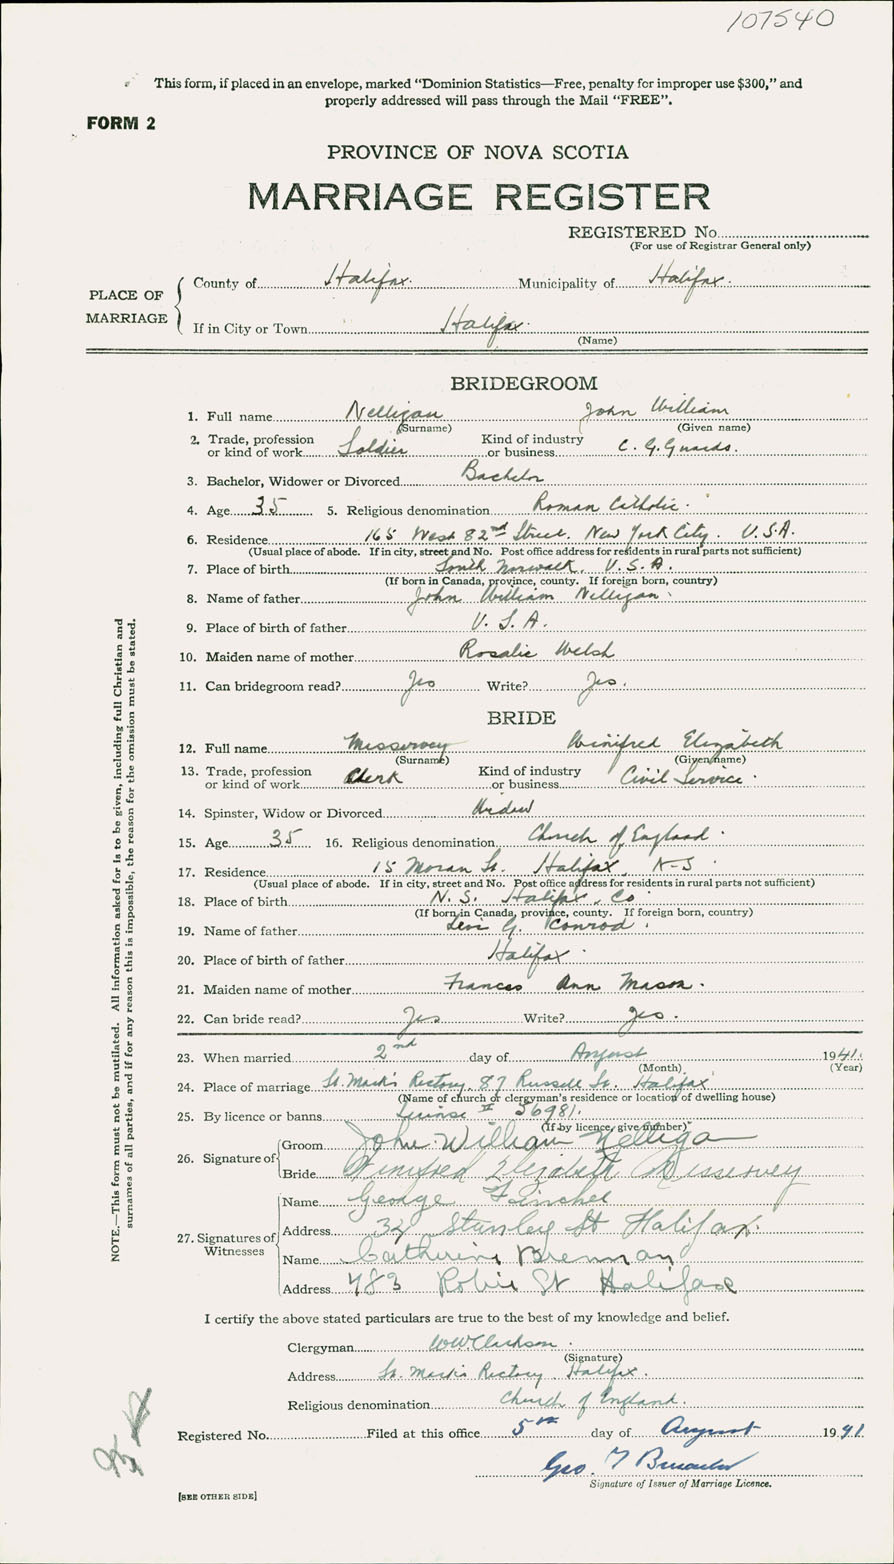 107540
This form, if placed in an envelope, marked “Dominion Statistics—Free, penalty for improper use $300,” and
properly addressed will pass through the Mail “FREE”.
FORM 2
PROVINCE OF NOVA SCOTIA
MARRIAGE REGISTER
REGISTERED No.
(For use of Registrar General only)
PLACE OF MARRIAGE
County of Halifax. Municipality of Halifax.
If in City or Town Halifax.
(Name)
BRIDEGROOM
1. Full name Nelligan John William
(Surname) (Given name)
2. Trade, profession or kind of work Soldier Kind of industry or business C. G. Guards.
3. Bachelor, Widower or Divorced Bachelor
4. Age 35 5. Religious denomination Roman Catholic.
6. Residence 165 West 82nd Street. New York City. U.S.A.
(Usual place of abode. If in city, street and No. Post office address for residents in rural parts not sufficient)
7. Place of birth South Norwalk. U.S.A.
(If born in Canada, province, county. If foreign born, country)
8. Name of father John William Nelligan.
9. Place of birth of father U.S.A.
10. Maiden name of mother Rosalie Welsh
11. Can bridegroom read? Yes Write? Yes.
BRIDE
12. Full name Misservey Winifred Elizabeth
(Surname) (Given name)
13. Trade, profession or kind of work Clerk Kind of industry or business Civil Service.
14. Spinster, Widow or Divorced Widow
15. Age 35 16. Religious denomination Church of England.
17. Residence 15 Moran St. Halifax, N-S.
(Usual place of abode. If in city, street and No. Post office address for residents in rural parts not sufficient)
18. Place of birth N.S. Halifax, Co.
(If born in Canada, province, county. If foreign born, country)
19. Name of father Levi G. Conrod.
20. Place of birth of father Halifax.
21. Maiden name of mother Frances Ann Mason.
22. Can bride read? Yes Write? yes.
23. When married 2nd day of August 1941.
(Month) (Year)
24. Place of marriage St. Mark's Rectory, 87 Russell St. Halifax
(Name of church or clergyman's residence or location of dwelling house)
25. By licence or banns 56981.
(If by licence, give number)
26. Signature of
Groom John William Nelligan
Bride Winifred Elizabeth Misservey
27. Signatures of Witnesses
Name George
Address 32 Stanley St Halifax.
Name Catherine Brennan
Address 483 Robie St Halifax
I certify the above stated particulars are true to the best of my knowledge and belief.
Clergyman WW Clarkson.
(Signature)
Address St. Mark's Rectory. Halifax.
Religious denomination Church of England.
Registered No. Filed at this office 5th day of August 1941
Geo. T
Signature of Issuer of Marriage Licence.
[SEE OTHER SIDE]
NOTE.—This form must not be mutilated. All information asked for is to be given, including full Christian and
surnames of all parties, and if for any reason this is impossible, the reason for the omission must be stated.